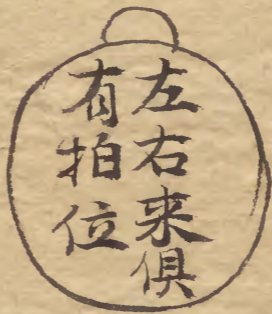 左右来俱
有拍位